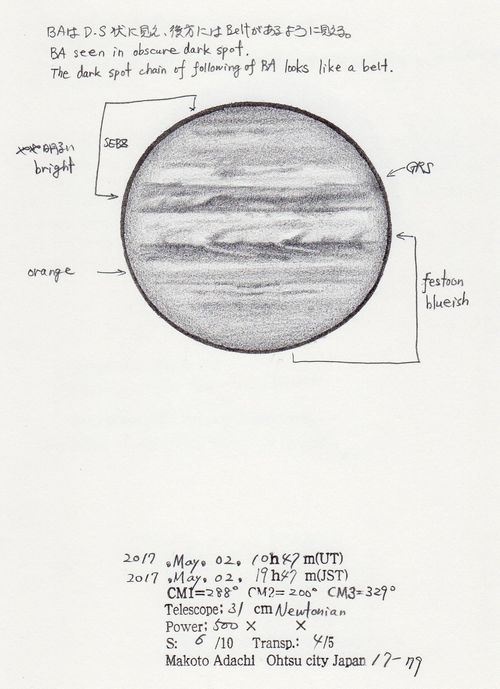 BAは D.S 状に見え、後方には Beltがあるように見える。
BA seen in obscure dark spot.
The dark spot chain of following of BA looks like a belt.
SEBZ
やや明るい
bright
GRS
orange
festoon
blueish
2017 .May. 02. 10h47m(UT)
2017 .May. 02. 19h47m(JST)
CM1=288° CM2=200° CM3=329°
Telescope: 31 cm Newtonian
Power: 500 × ×
S: 6 /10 Transp.: 4/5
Makoto Adachi Ohtsu city Japan 17-79